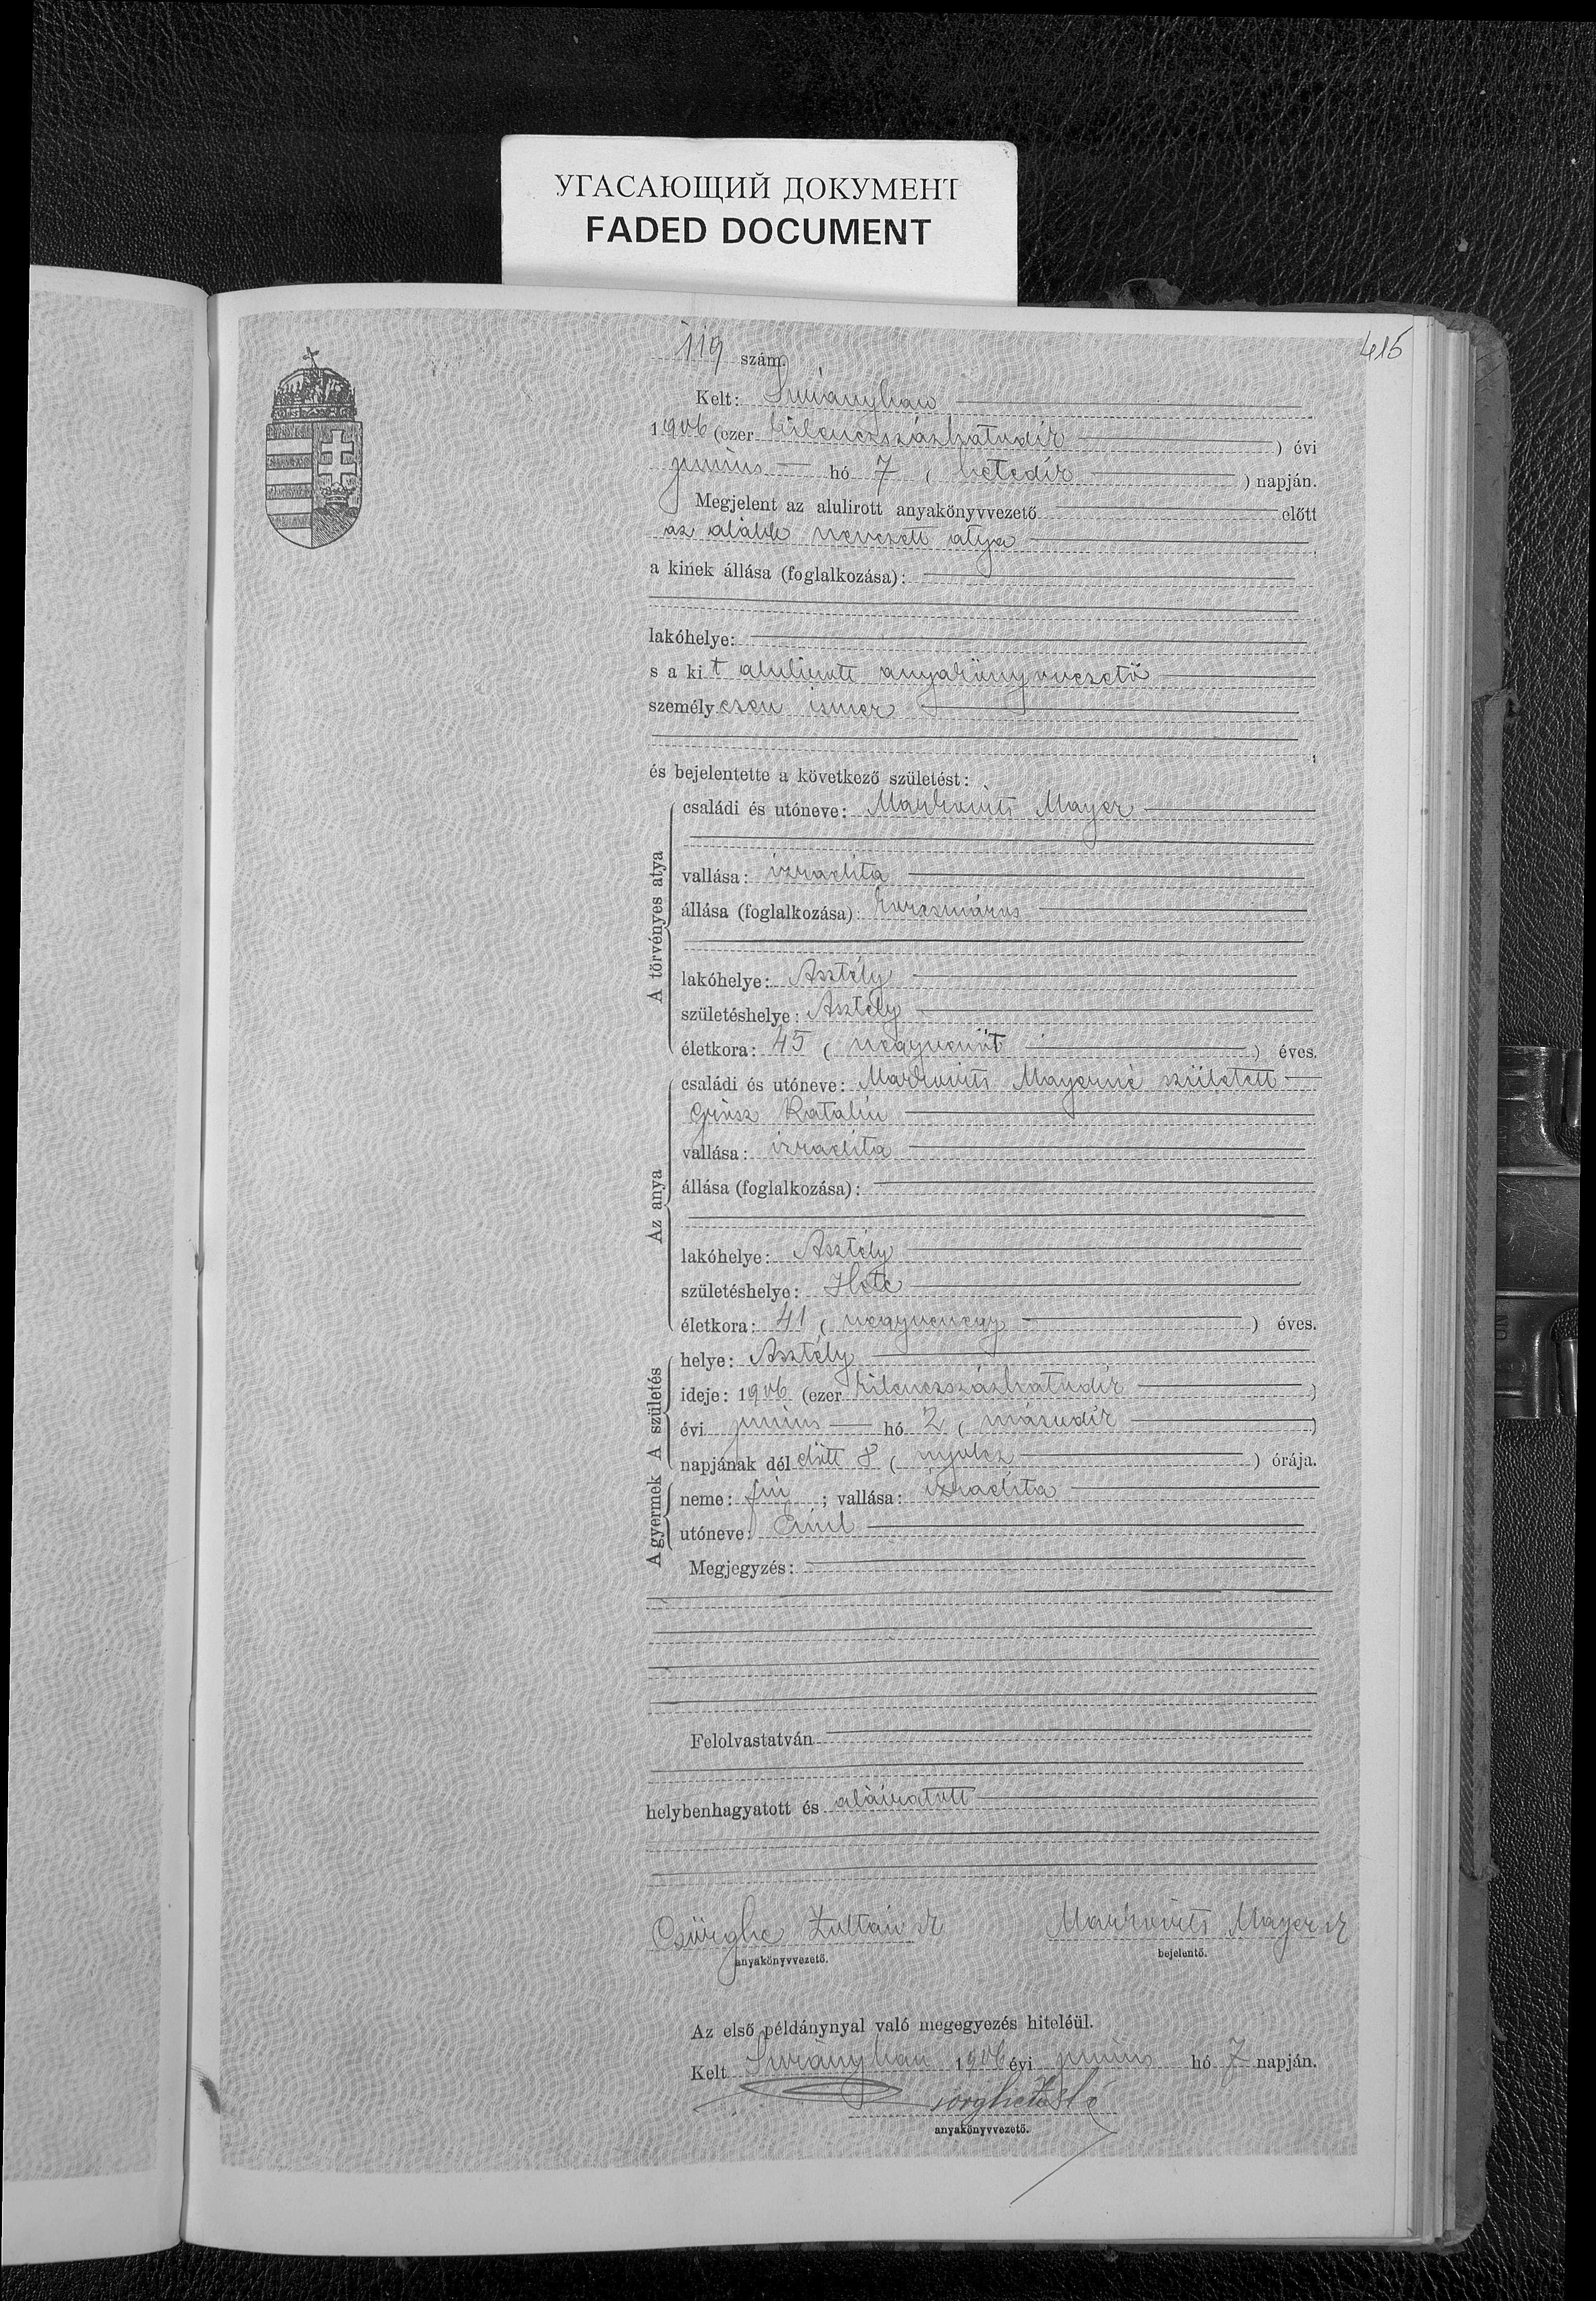 УГАСАЮЩИЙ ДОКУМЕНТ
FADED DOCUMENT
415
119 szám.
Kelt: Surányban
1906 (ezer kilenczszázhatodik) évi
junius hó 7 (hetedik) napján.
Megjelent az alulirott anyakönyvvezető előtt
az alább nevezett atya
a kinek állása (foglalkozása):
lakóhelye:
s a kit alulirott anyakönyvvezető
személyesen ismer
és bejelentette a következő születést:
A törvényes atya
családi és utóneve: Markovits Mayer
vallása: izraelita
állása (foglalkozása): korcsmáros
lakóhelye: Asztély
születéshelye: Asztély
életkora: 45 (negyvenöt) éves.
Az anya
családi és utóneve: Markovits Mayerné született
Grósz Katalin
vallása: izraelita
állása (foglalkozása):
lakóhelye: Asztély
születéshelye:
életkora: 41 (negyvenegy) éves.
A születés
helye: Asztély
ideje: 1906 (ezer kilenczszázhatodik)
évi junius hó 2 (második)
napjának délelőtt 8 (nyolcz) órája.
A gyermek
neme: fiú; vallása: izraelita
utóneve: Emil
Megjegyzés:
Felolvastatván
helybenhagyatott és aláiratott
Csörghe Zoltán sk
anyakönyvvezető.
Markovits Mayer sk
bejelentő.
Az első példánynyal való megegyezés hiteléül.
Kelt Surányban 1906 évi junius hó 7 napján.
anyakönyvvezető.